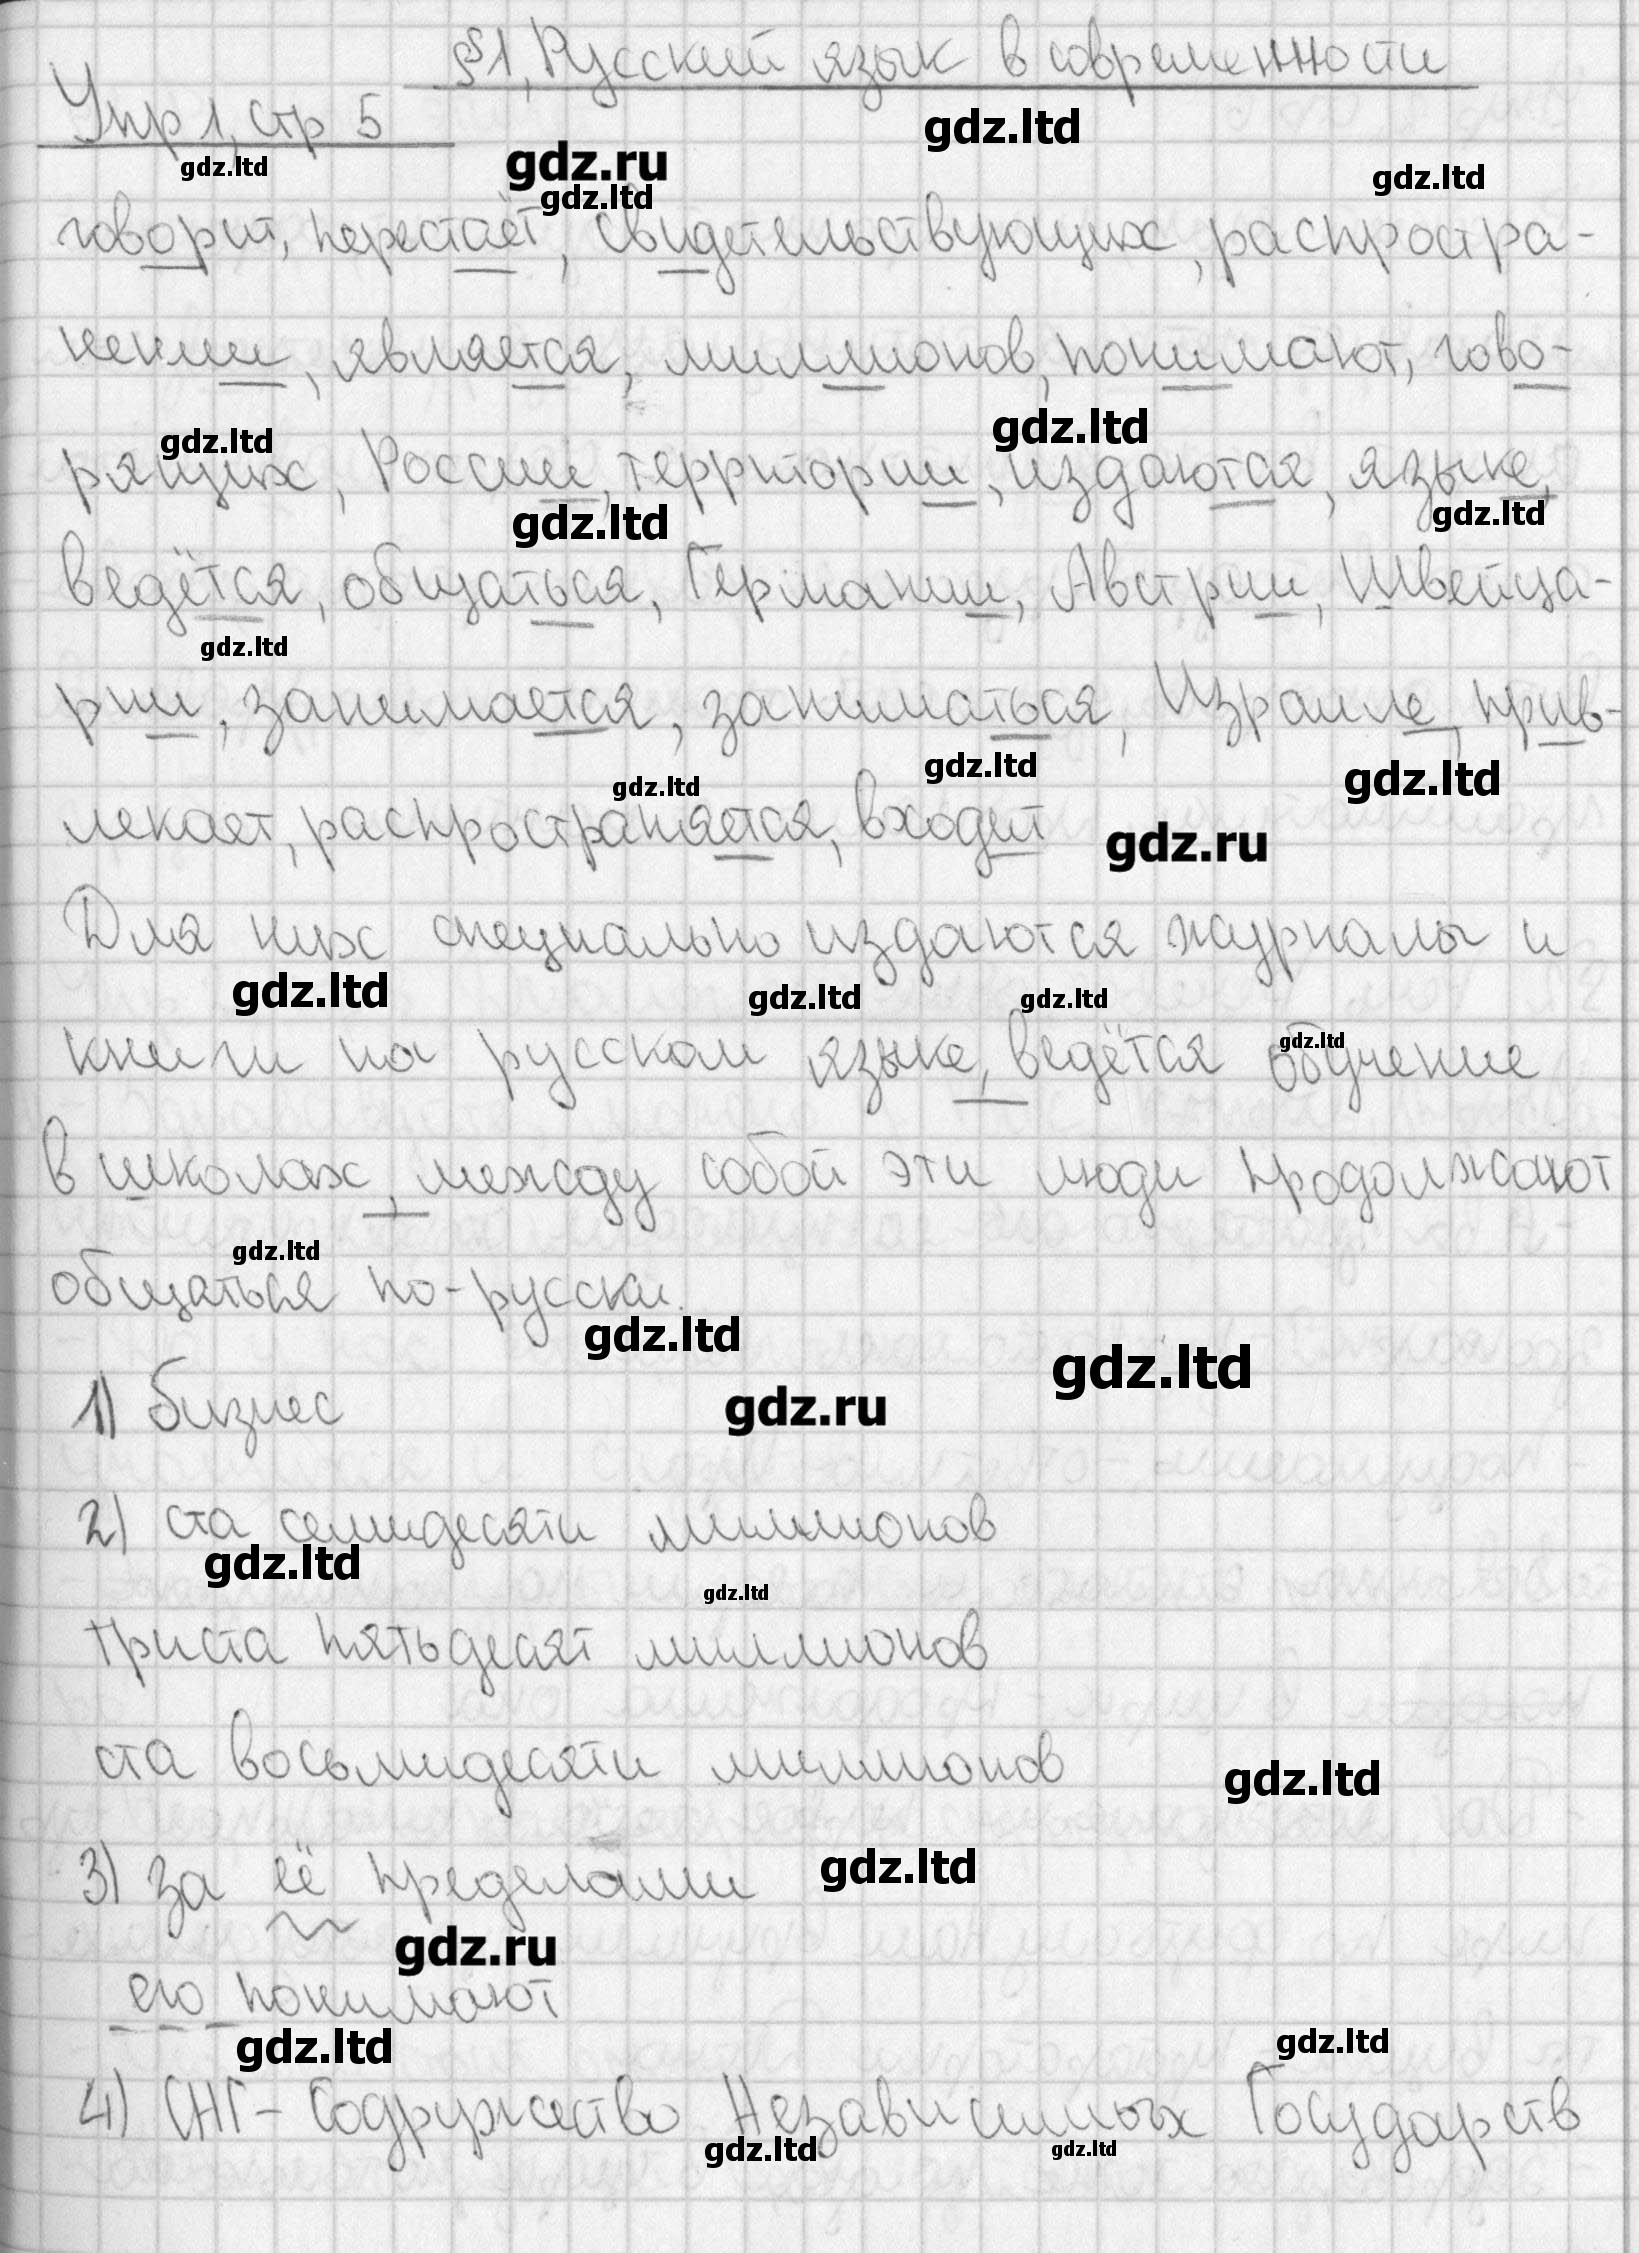 §1, Русский язык в современности
Упр 1, стр 5
gdz.ltd
gdz.ltd gdz.ru gdz.ltd
gdz.ltd
говорит, перестаёт, свидетельствующих, распростра-
нении, является, миллионов, понимают, гово-
gdz.ltd gdz.ltd
рящих, России, территории, издаются, языке,
gdz.ltd gdz.ltd
ведётся, общаться, Германии, Австрии, Швейца-
gdz.ltd
рии, занимается, заниматься, Израиле, прив-
gdz.ltd gdz.ltd gdz.ltd
лекает, распространяется, входит
gdz.ru
Для них специально издаются журналы и
gdz.ltd gdz.ltd gdz.ltd
gdz.ltd
книги на русском языке, ведётся обучение
в школах, между собой эти люди продолжают
gdz.ltd
общаться по-русски.
gdz.ltd gdz.ltd
1) бизнес
gdz.ru
2) ста семидесяти миллионов
gdz.ltd gdz.ltd
триста пятьдесят миллионов
ста восьмидесяти миллионов
gdz.ltd
3) за её пределами
gdz.ltd
gdz.ru
его понимают
gdz.ltd gdz.ltd
4) СНГ - Содружество Независимых Государств
gdz.ltd gdz.ltd